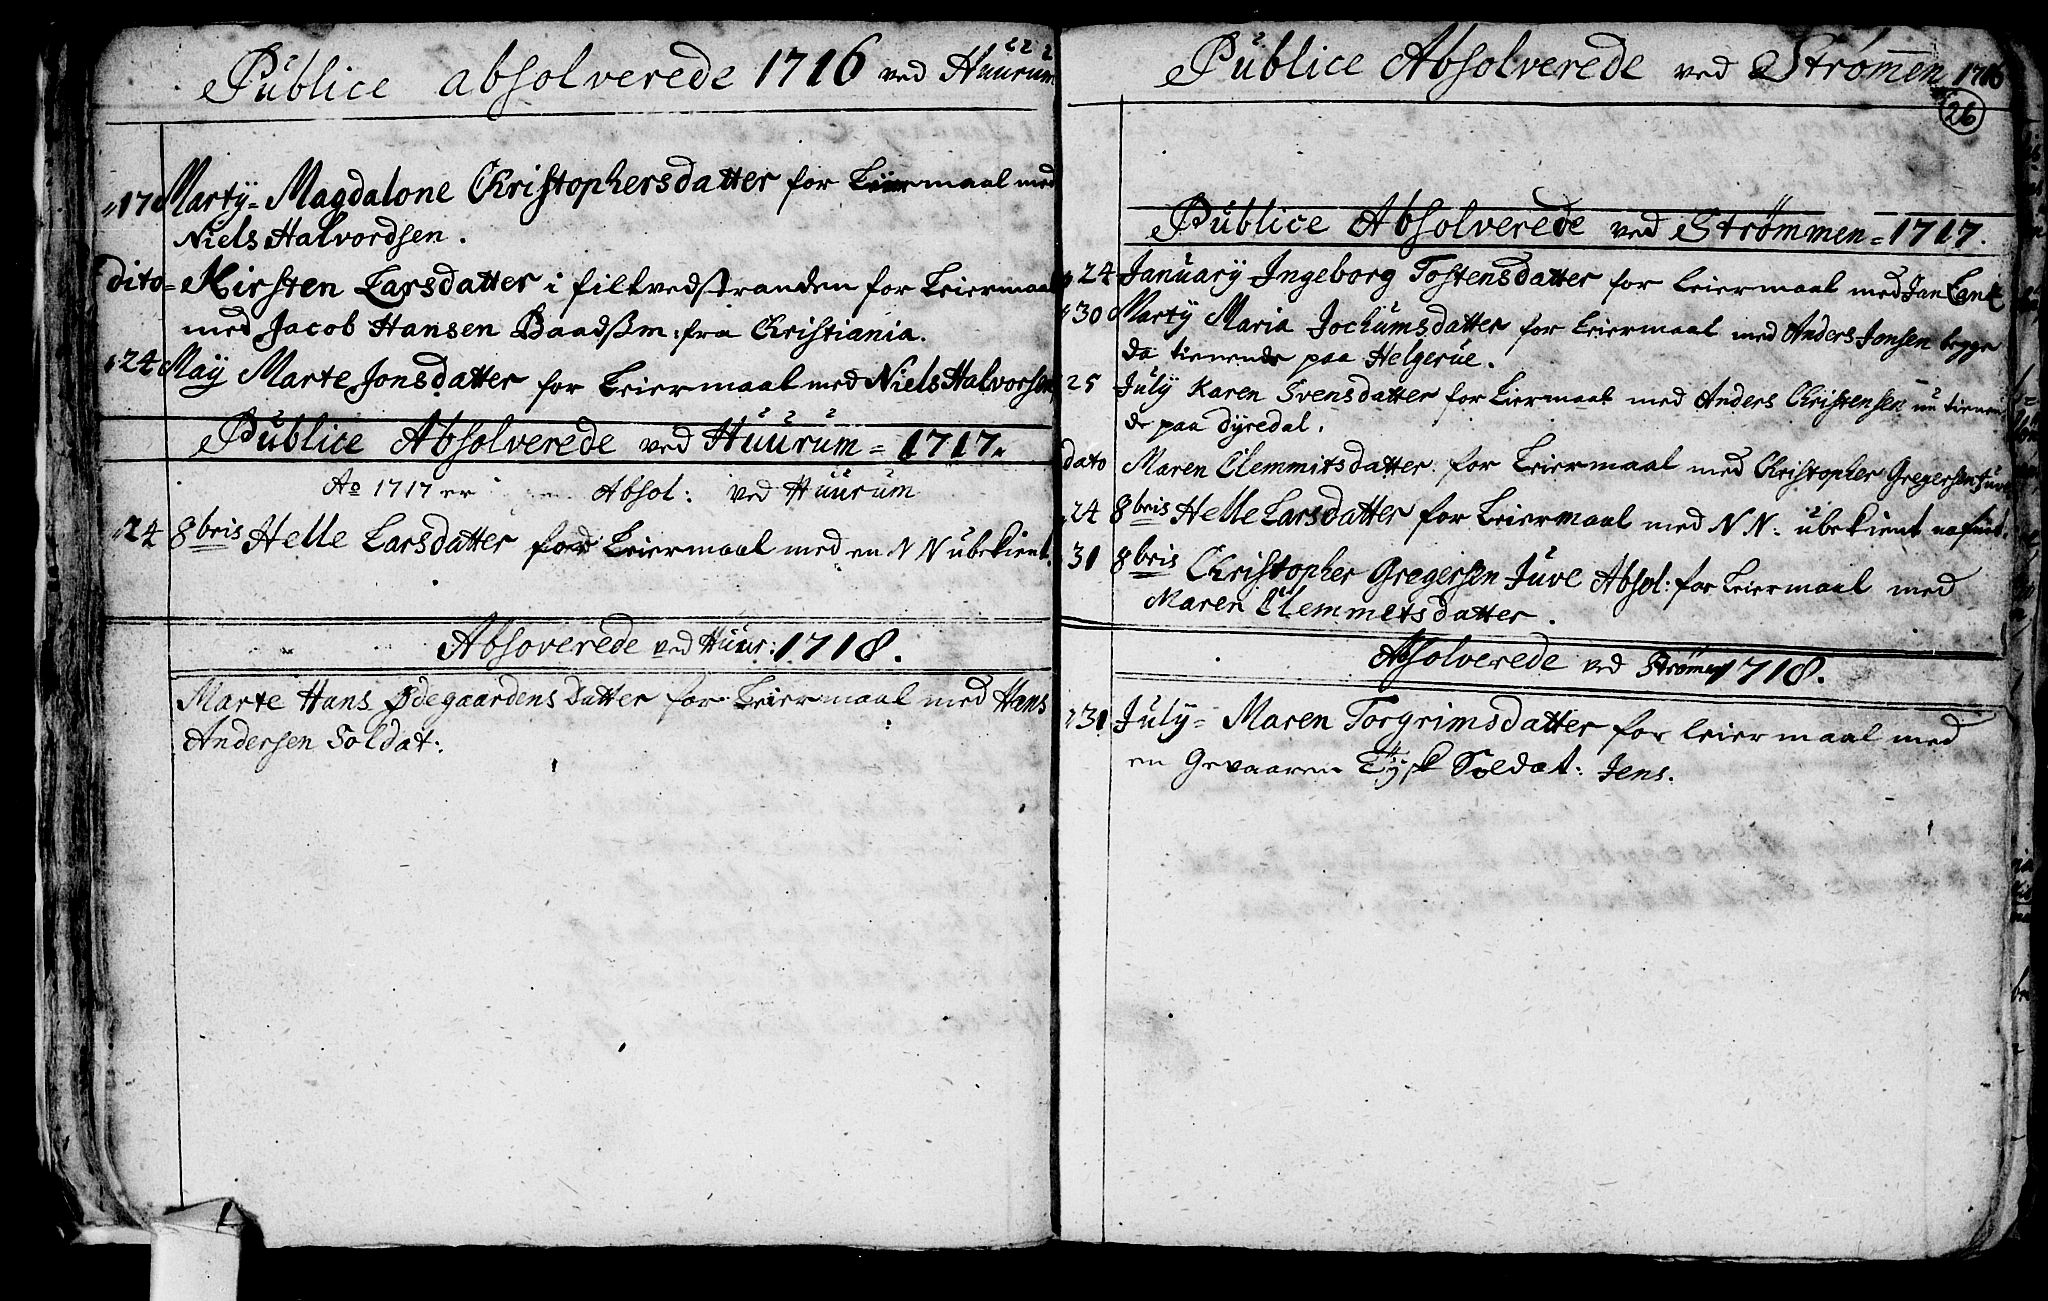 Publice absolverede 1716 ved Huurum
17 Marty = Magdalone Christophersdatter for Leiermaal med
Niels Halvordsen.
dito = Kirsten Larsdatter i filtvedstranden for Leiermaal
med Jacob Hansen Baadsm: fra Christiania.
24 May Marte Jonsdatter for Leiermaal med Niels Halvorsen
Publice Absolverede ved Huurum = 1717.
Ao 1717 er Absol: ved Huurum
24 8bris Helle Larsdatter for Leiermaal med en N N ubekient.
Absoverede ved Huur: 1718.
Marte Hans Ødegaardens Datter for Leiermaal med Hans
Andersen Soldat:
Publice Absolverede ved Strømen 1716
26
Publice Absolverede ved Strømmen = 1717.
24 January Ingeborg Tostensdatter for Leiermaal med Jan
30 Marty Maria Jochumsdatter for Leiermaal med Anders Jonsen begge
da tienende paa Helgerue.
25 July Karen Svensdatter for Leiermaal med Anders Christensen nu tienen
de paa Dyredal.
dato Maren Clemmitsdatter for Leiermaal med Christopher Gregersen Juve
24 8bris Helle Larsdatter for Leiermaal med N N: ubekient
31 8bris Christopher Gregersen Juve Absol: for Leiermaal med
Maren Clemmetsdatter.
Absolverede ved Strøme 1718.
31 July = Maren Torgrimsdatter for Leiermaal med
en Gevaaren Tysk Soldat: Jens.